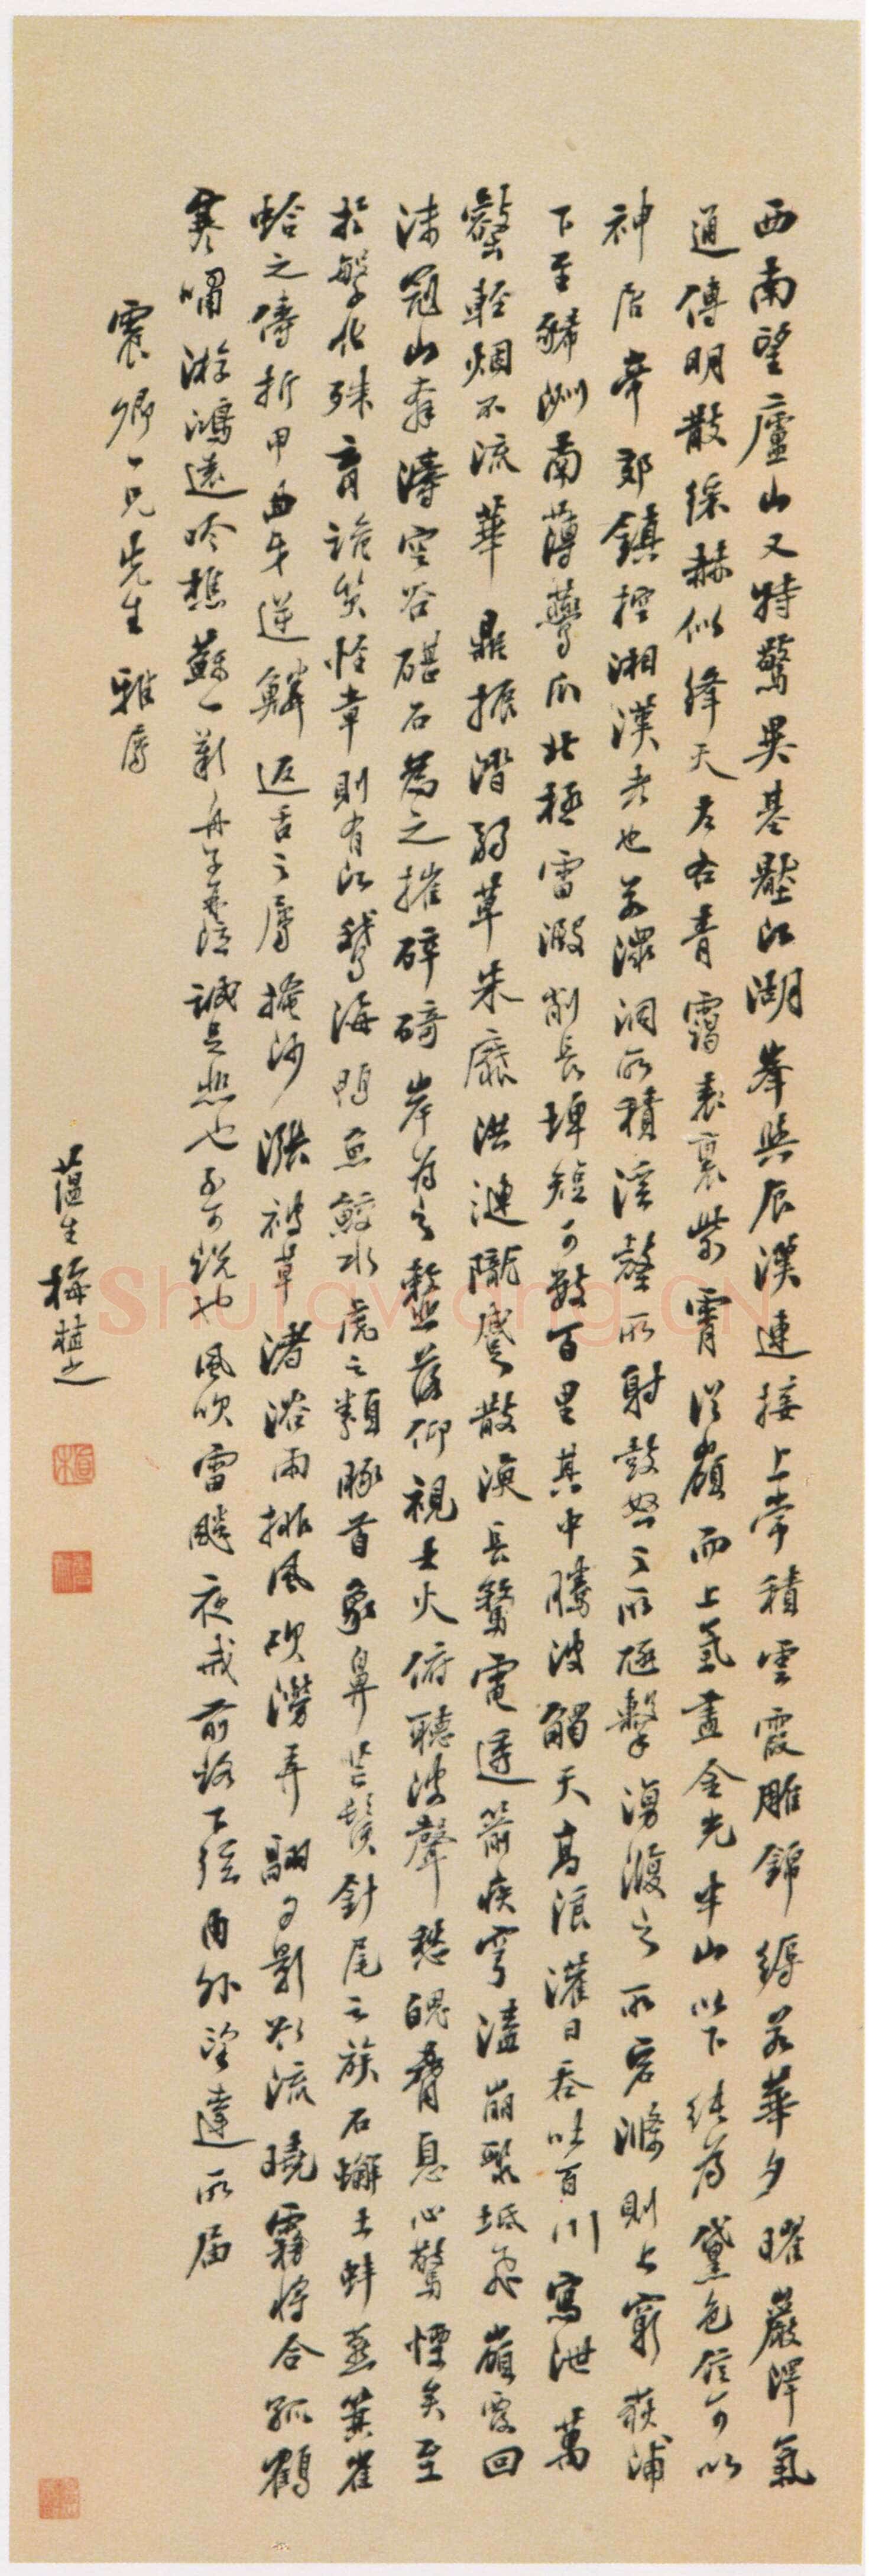 西南望廬山又特驚異基壓江湖峯與辰漢連接上常積雲霞雕錦縟若華夕曜巖澤氣
通傳明散綵赫似絳天左右青靄表裏紫霄從嶺而上氣盡金光半山以下純為黛色信可以
神居帝郊鎮控湘漢者也若潨洞所積溪壑所射鼓怒之所豗擊湧澓之所宕滌則上窮荻浦
下至狶洲南薄鷰爪北極雷澱削長埤短可數百里其中騰波觸天高浪灌日吞吐百川寫泄萬
壑輕烟不流華鼎振涾弱草朱靡洪漣隴蹙散渙長驚電透箭疾穹溘崩聚坻飛嶺覆回
沫冠山奔濤空谷碪石為之摧碎碕岸為之䪠落仰視大火俯聽波聲愁魄脅息心驚慓矣至
於繁化殊育詭質怪章則有江鵝海鴨魚鮫水虎之類豚首象鼻芒鬚針尾之族石蟹土蚌燕箕雀
蛤之儔折甲曲牙逆鱗返舌之屬掩沙漲被草渚浴雨排風吹澇弄翮夕影欲流曉霧將合孤鶴
寒嘯游鴻遠吟樵蘇一歎舟子再泣誠足悲也不可說也風吹雷飈夜戒前路下弦內外望達所屆
震卿一兄先生雅屬
蘊生梅植之
Shufawang.CN